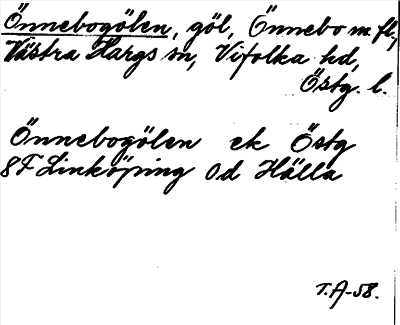 Önnebogölen, göl, Önnebo m. fl.,
Västra Hargs sn, Vifolka hd,
Östg. l.
Önnebogölen ek Östg
8F Linköping 0d Hälla
T.A-58.